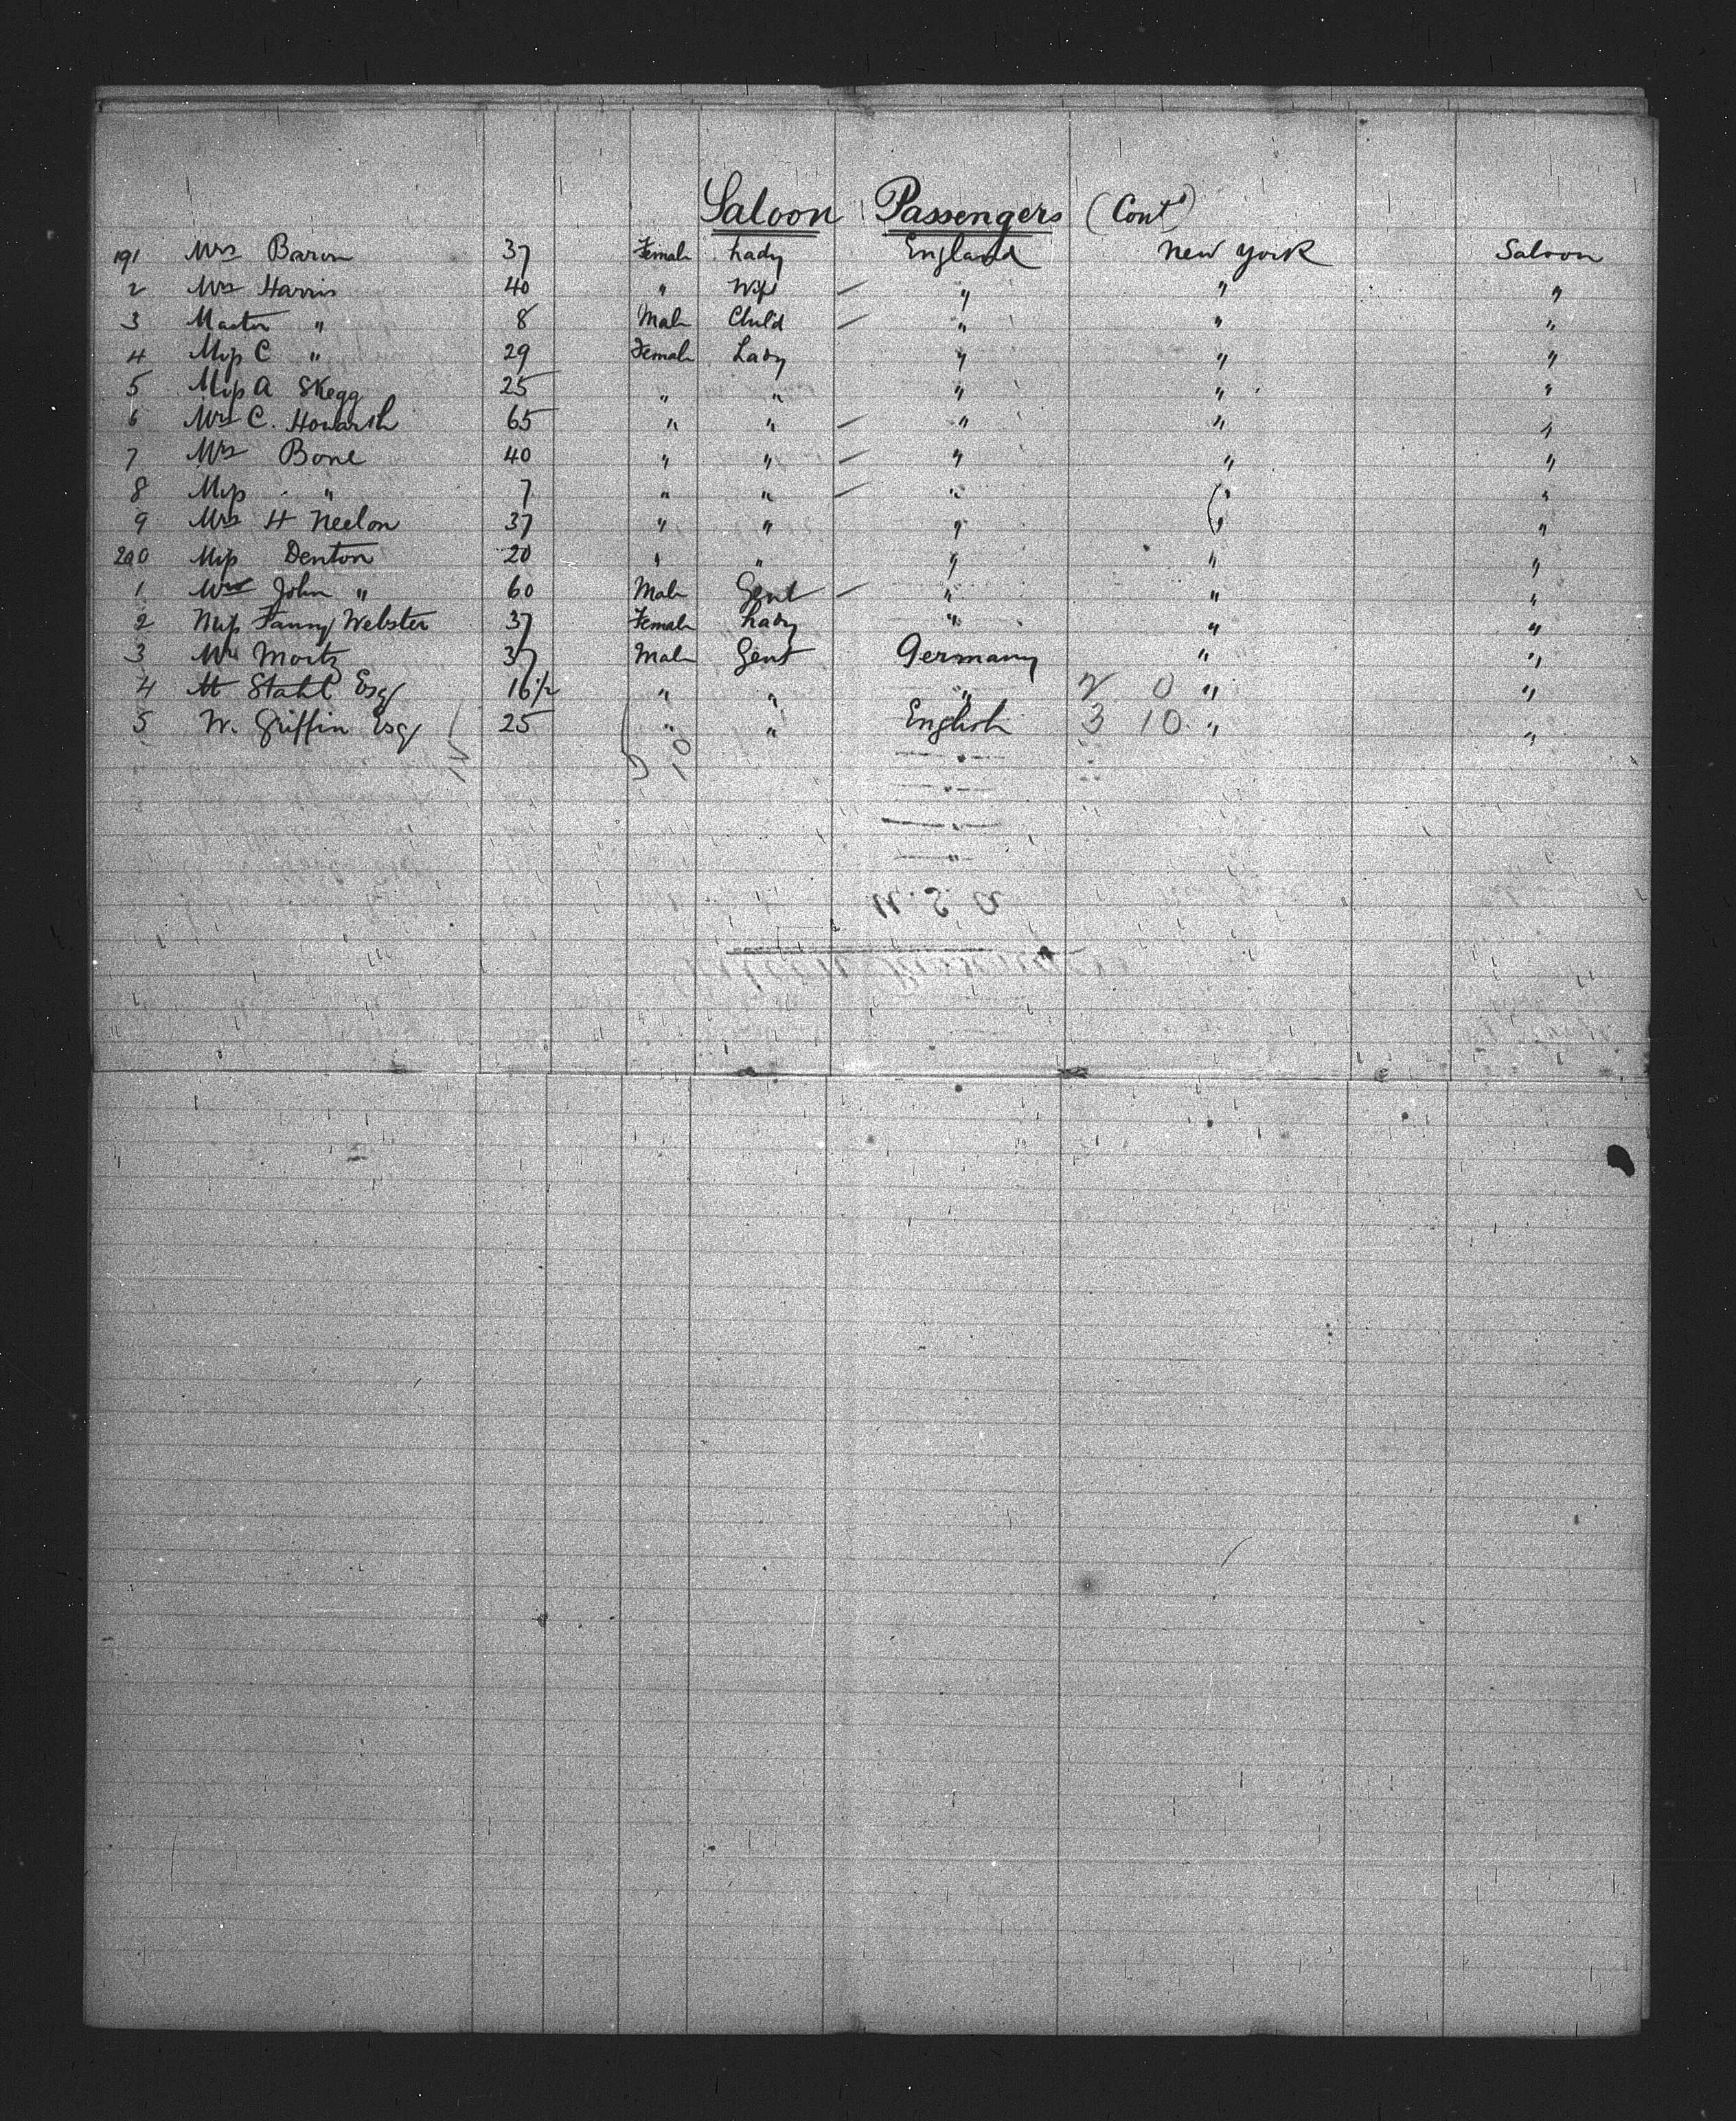 Saloon Passengers (Contd)
191 Mrs Baron 37 Female Lady England New York Saloon
2 Mrs Harris 40 " Wife — " " "
3 Master " 8 Male Child — " " "
4 Miss C " 29 Female Lady " " "
5 Miss A Skegg 25 " " " " "
6 Mrs C. Howarth 65 " " — " " "
7 Mrs Bone 40 " " — " " "
8 Miss " 7 " " — " " "
9 Mrs H Neelon 37 " " " " "
200 Miss Denton 20 " " " " "
1 John " 60 Male Gent — " " "
2 Miss Fanny Webster 37 Female Lady " " "
3 Mr Moritz 37 Male Gent Germany " "
4 M Stahl Esq 16 1/2 " " " 2 0 " "
5 W. Griffin Esq 25 " " English 3 10 " "